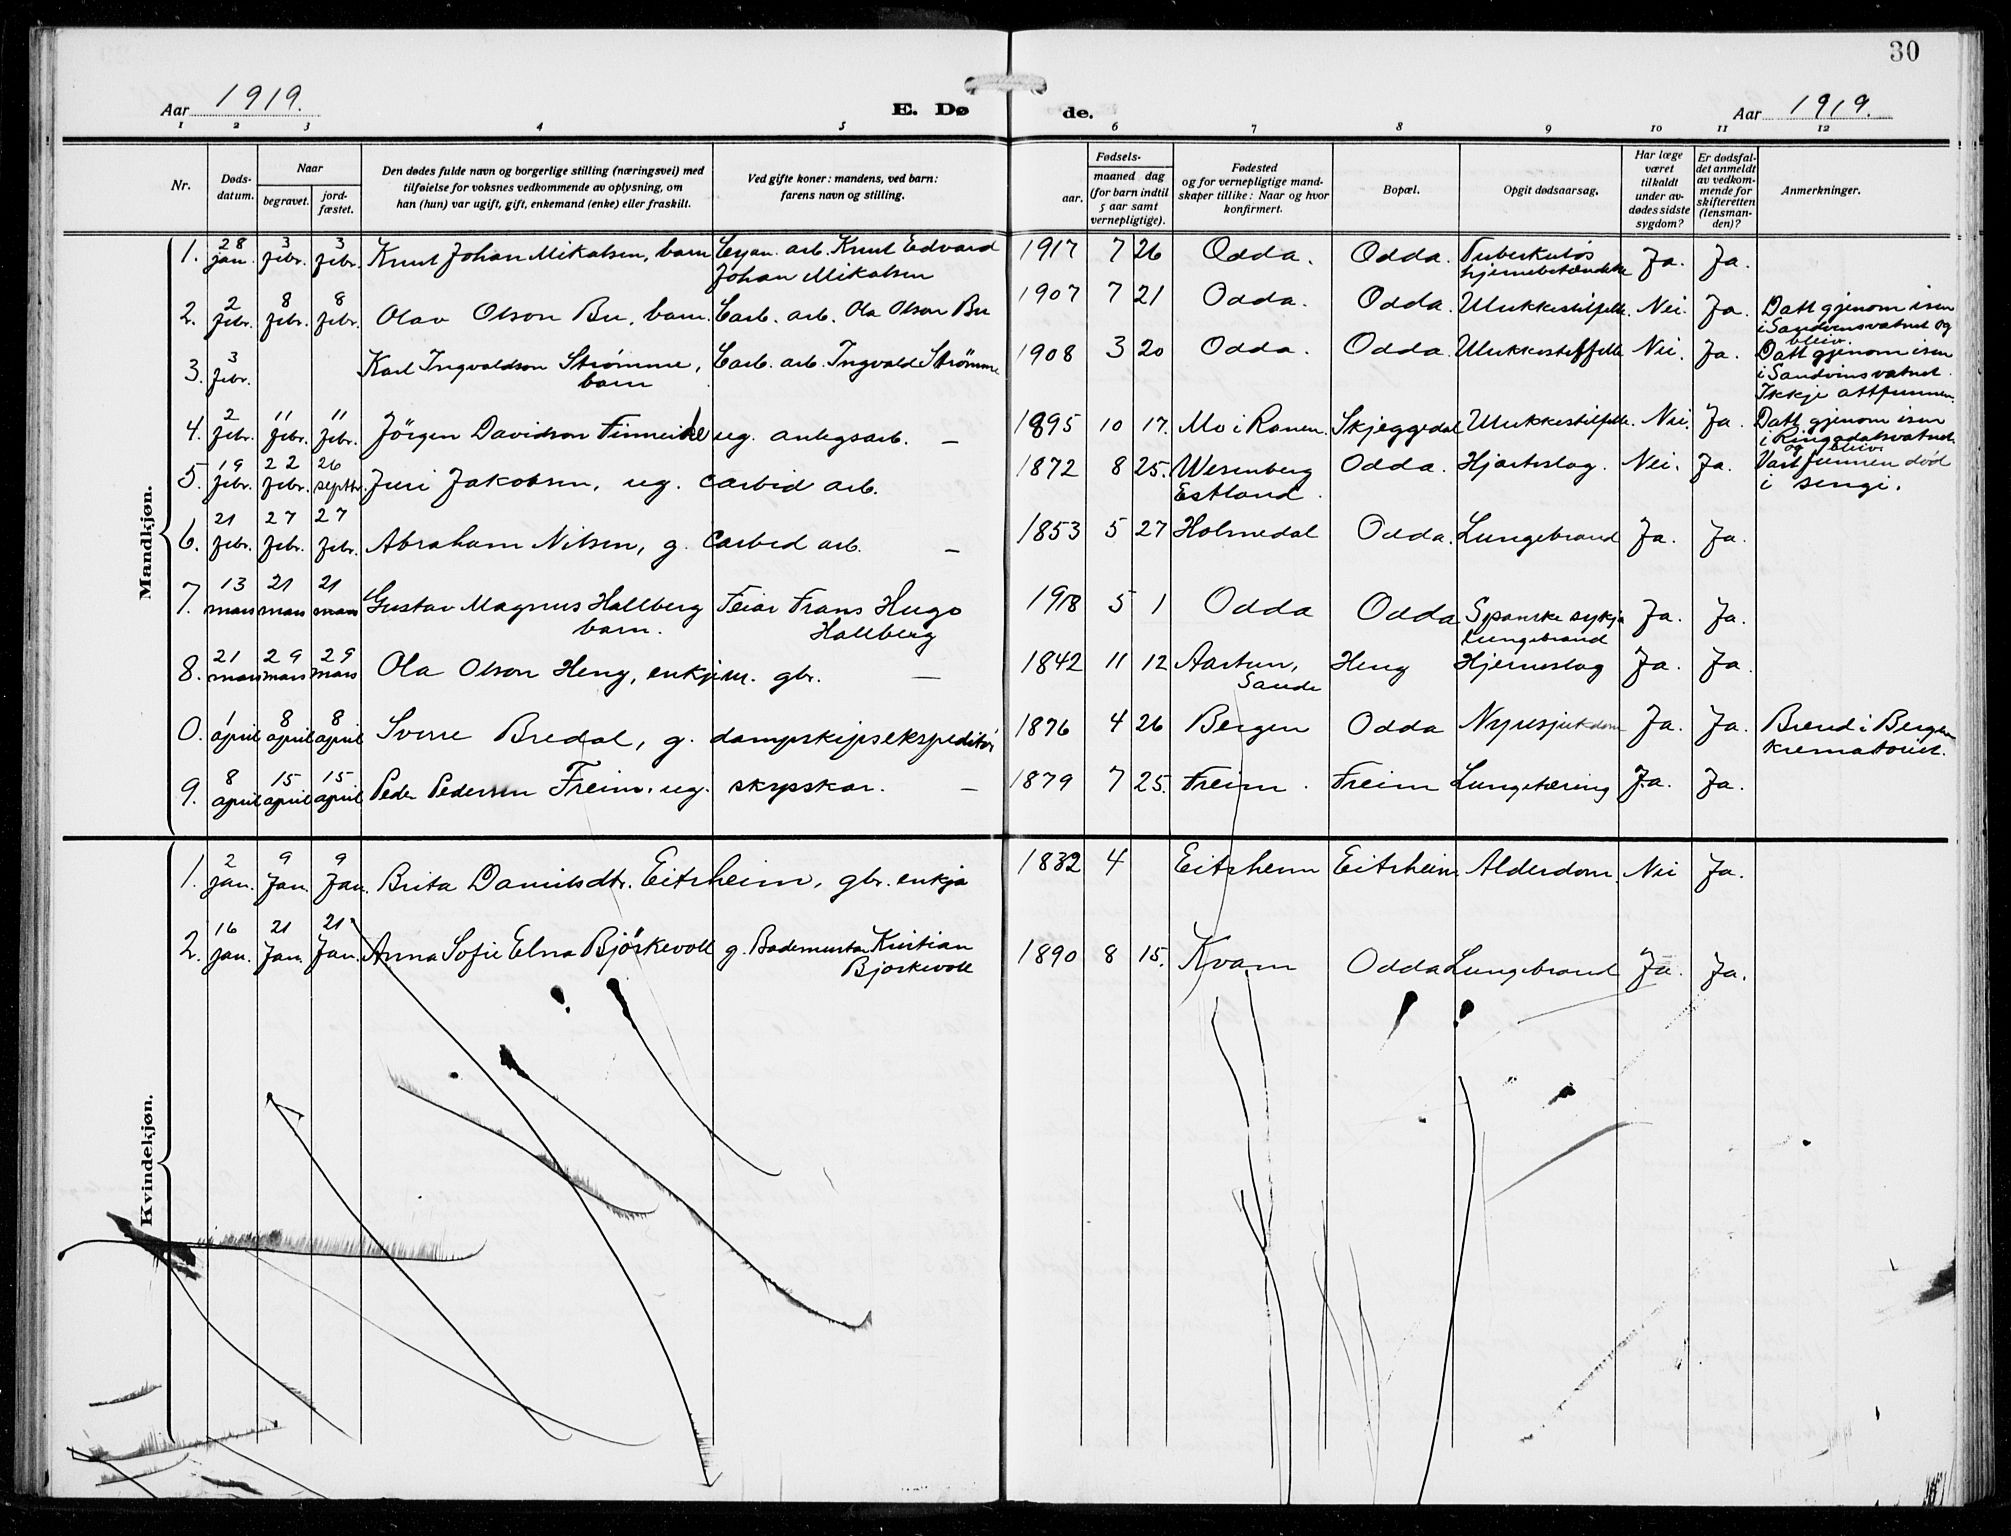 30
Aar 1919.
E. Dø
de.
Aar 1919.
1 2 3 4 5 6 7 8 9 10 11 12
Nr.
Døds-
datum.
Naar
begravet.
jord-
fæstet.
Den dødes fulde navn og borgerlige stilling (næringsvei) med
tilføielse for voksnes vedkommende av oplysning, om
han (hun) var ugift, gift, enkemand (enke) eller fraskilt.
Ved gifte koner: mandens, ved barn:
farens navn og stilling.
Fødsels-
aar.
maaned dag
(for barn indtil
5 aar samt
vernepligtige).
Fødested
og for vernepligtige mand-
skaper tillike: Naar og hvor
konfirmert.
Bopæl.
Opgit dødsaarsag.
Har læge
været
tilkaldt
under av-
dødes sidste
sygdom?
Er dødsfal-
det anmeldt
av vedkom-
mende for
skifteretten
(lensman-
den)?
Anmerkninger.
Mandkjøn.
1. 28 jan. 3 febr. 3 febr. Knut Johan Mikalsen, barn Cyan. arb. Knut Edvard
Johan Mikalsen
1917 7 26 Odda. Odda. Tuberkuløs
hjernebetændelse Ja. Ja.
2. 2 febr. 8 febr. 8 febr. Olav Olson Bu, barn. Carb. arb. Ola Olson Bu
1907 7 21 Odda. Odda. Ulukkestilfelle. Nei. Ja. Datt gjenom isen
i Sandvinsvatnet og
bleiv.
3. 3 febr. Karl Ingvaldson Strømme,
barn
Carb. arb. Ingvald Strømme
1908 3 20 Odda. Odda. Ulukkestilfelle Nei. Ja. Datt gjenom isen
i Sandvinsvatnet.
Ikkje attfunnen.
4. 2 febr. 11 febr. 11 febr. Jörgen Davidson ug. anlegsarb. —
1895 10 17. Mo i Ranen. Skjeggedal Ulukkestilfelle. Nei. Ja. Datt gjenom isen
i Ringedalsvatnet
og bleiv.
5. 19 febr. 22 febr. 26 septbr. Juri Jakobsen, ug. carbid arb.
1872 8 25. Wesenberg
Estland.
Odda. Hjarteslag. Nei. Ja. Vart funnen död
i sengi.
6. 21 febr. 27 febr. 27 febr. Abraham Nilsen, g. Carbid arb. —
1853 5 27 Holmedal Odda. Lungebrand Ja. Ja.
7. 13 mars 21 mars 21 mars Gustav Magnus Hallberg
barn.
Feiar Frans Hugo
Hallberg
1918 5 1 Odda Odda Spanske sykja
Lungebrand Ja. Ja.
8. 21 mars 29 mars 29 mars Ola Olson Heng, enkjem. gbr. —
1842 11 12 Aartun,
Sande
Heng Hjerneslag Ja. Ja.
0. 1 april 8 april 8 april Sverre Bredal, g. dampskipsekspeditör
1876 4 26 Bergen Odda Nyresjukdom Ja. Ja. Brend i Bergen
krematorium.
9. 8 april 15 april 15 april Peder Pedersen Freim, ug. skysskar. —
1879 7 25. Freim. Freim Lungetæring Ja. Ja.
Kvindekjøn.
1. 2 jan. 9 Jan. 9 Jan. Brita Danilsdtr. Eitrheim, gbr. enkja
1832 4 Eitrheim Eitrheim Alderdom. Nei Ja.
2. 16 jan. 21 Jan. 21 Jan. Anna Sofie Elna Bjørkevoll g. Bademester Kristian
Bjorkevoll
1890 8 15. Kvam Odda Lungebrand Ja. Ja.